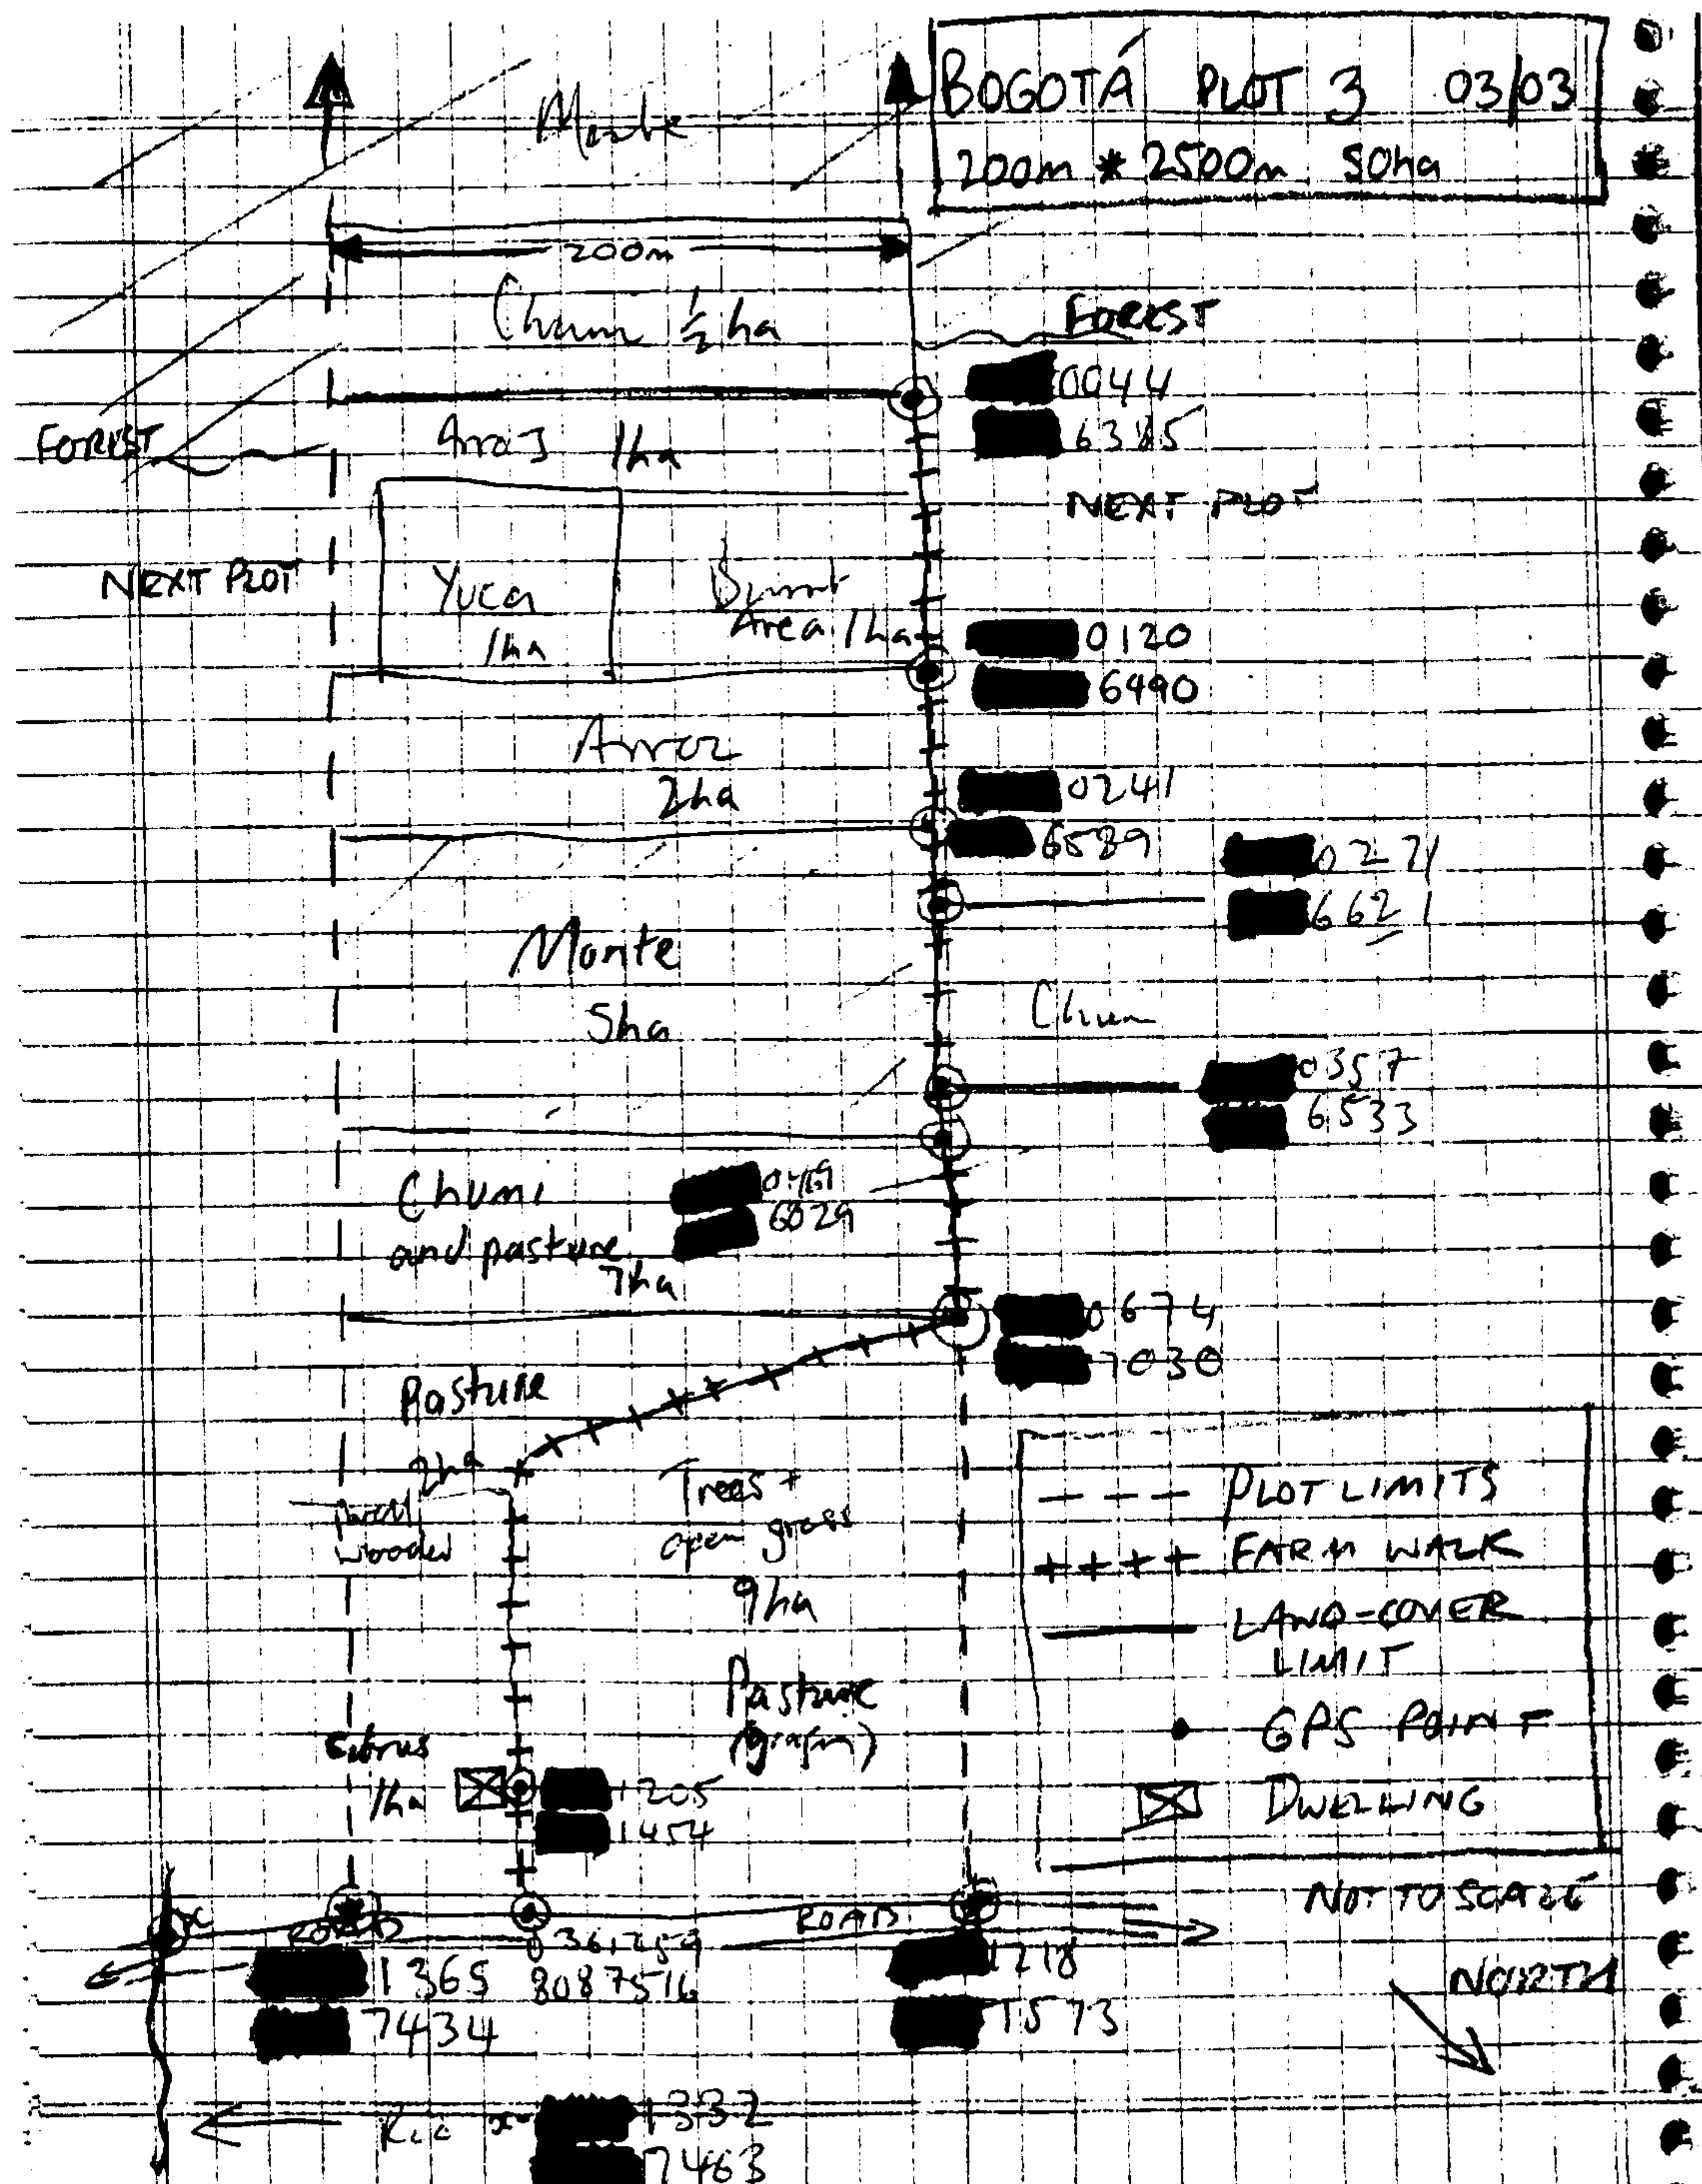 BOGOTÁ PLOT 3 03/03
200m * 2500m 50ha
Monte
200m
Chumi ½ ha
FOREST
0044
6385
FOREST
Arroz 1ha
NEXT PLOT
NEXT PLOT
Yuca
1ha
Burnt
Area 1ha
0120
6490
Arroz
2ha
0241
6589
0221
6621
Monte
5ha
Chumi
0357
6533
Chumi
and pasture
7ha
6829
0674
7030
Pasture
2ha
wooded
Trees +
open grass
9ha
Pasture
Citrus
1ha
1205
1454
PLOT LIMITS
FARM WALK
LAND-COVER
LIMIT
GPS POINT
DWELLING
NOT TO SCALE
NORTH
x
ROAD
ROAD
1365
7434
0361259
8087516
1218
7573
Rio
x
1332
7463